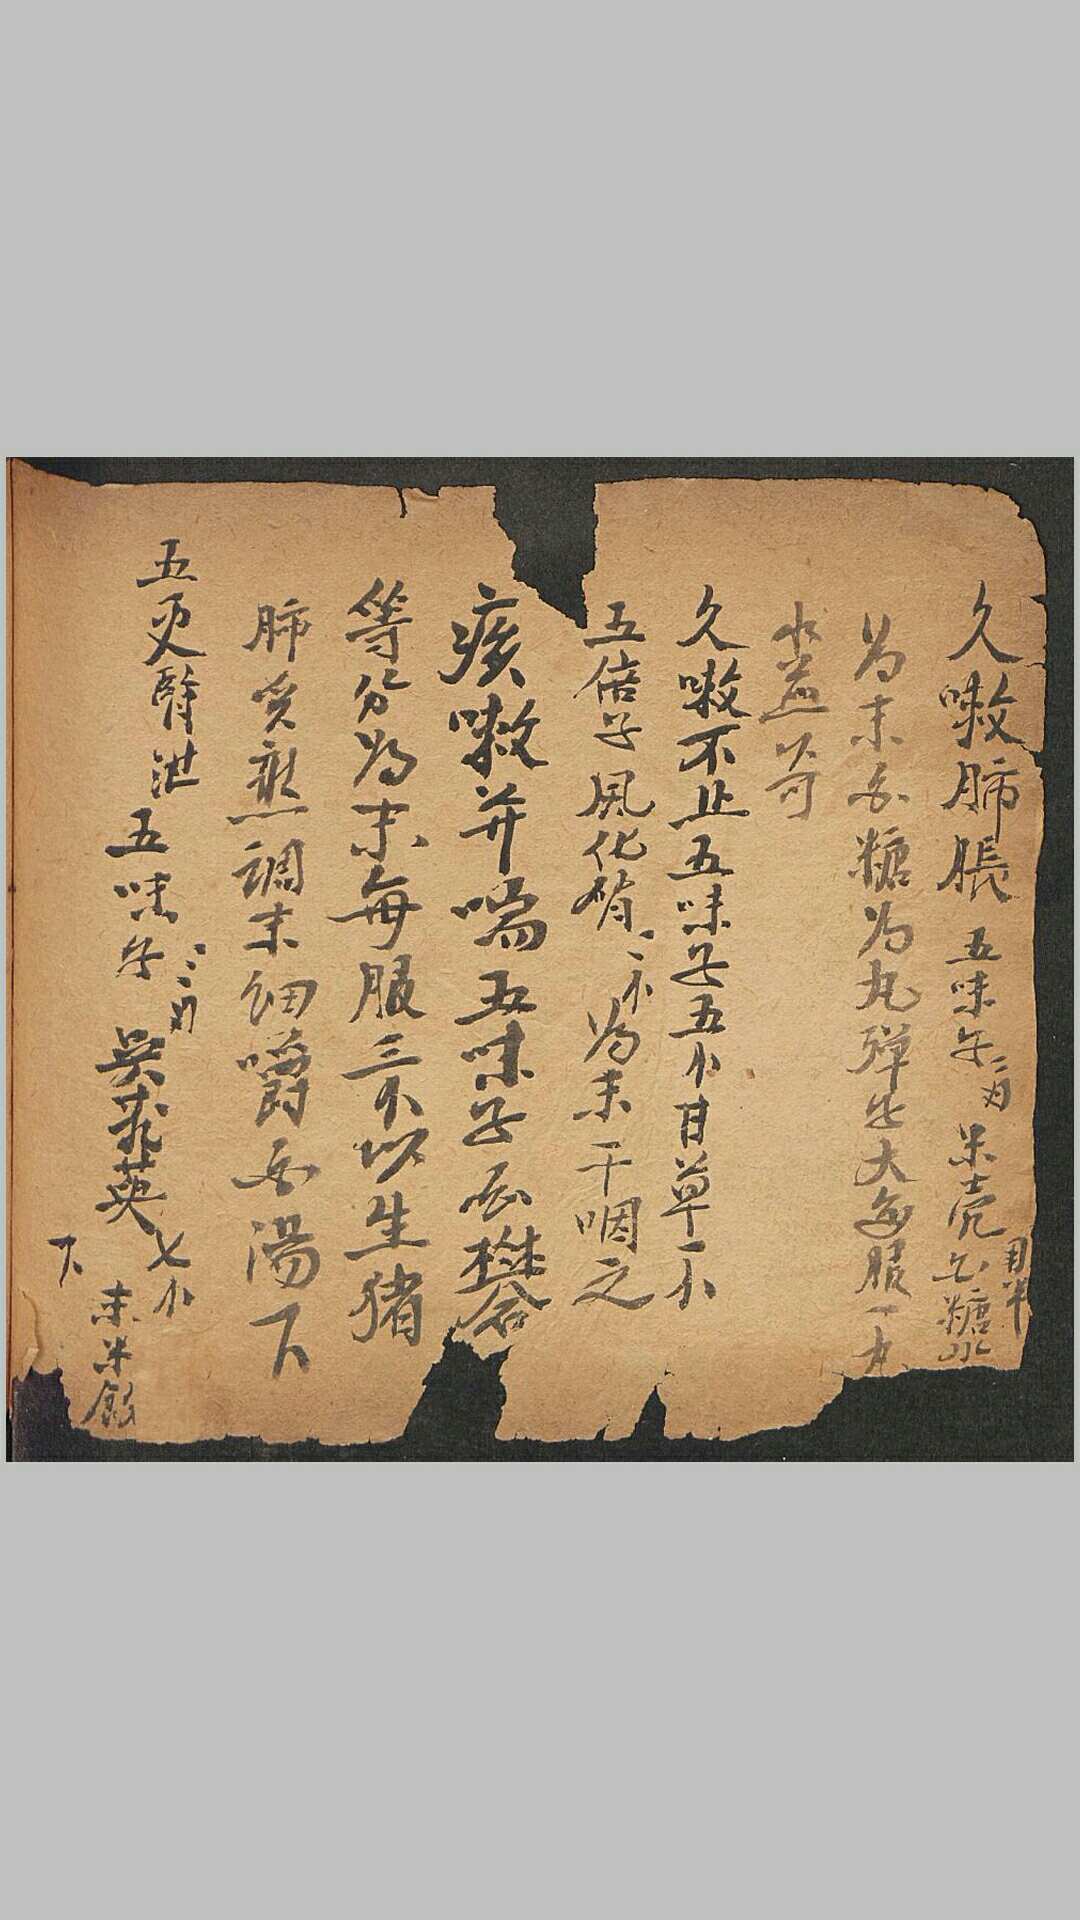 久嗽肺脹 五味子二両 米壳 白糖炒 用半
为末 白糖为丸弹子大每服一丸
水煎 可
久嗽不止五味子五小甘草一小
五倍子風化硝二小为末干咽之
痰嗽并喘五味子白礬
等分为末每服三小以生猪
肺炙熟調末細嚼白湯下
五更腎泄五味子二三両 吴茱萸七小
末米飲
下